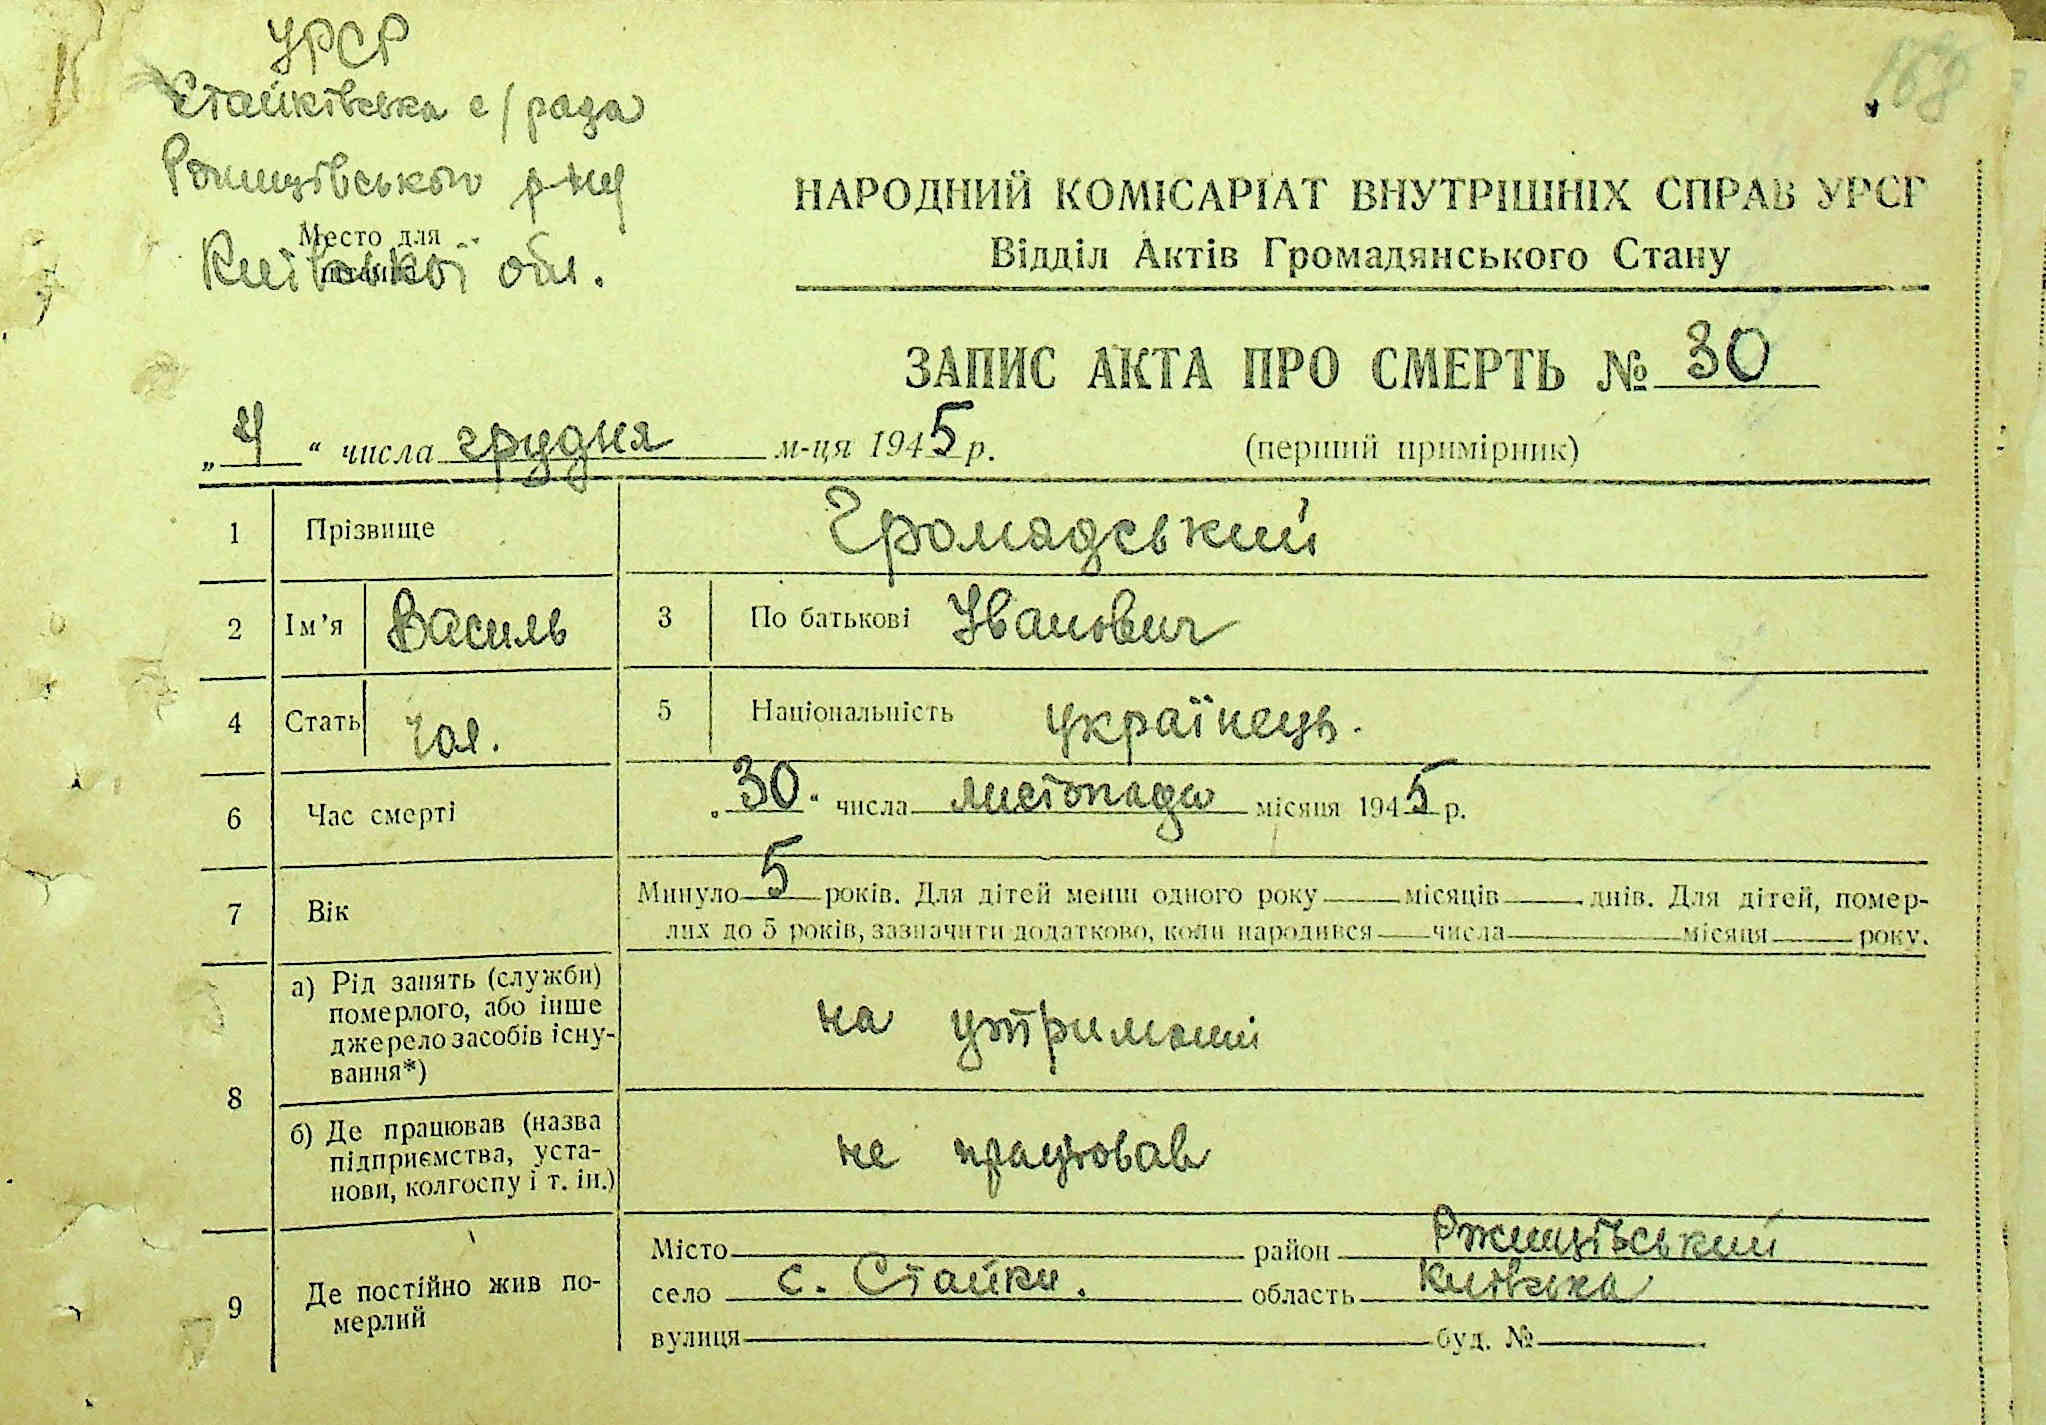 УРСР
168
Стайківська с/рада
Ржищівського р-ну
Место для
Київської обл.
НАРОДНИЙ КОМІСАРІАТ ВНУТРІШНІХ СПРАВ УРСР
Відділ Актів Громадянського Стану
ЗАПИС АКТА ПРО СМЕРТЬ № 30
„4“ числа грудня м-ця 1945 р. (перший примірник)
1 Прізвище Громадський
2 Ім’я Василь 3 По батькові Іванович
4 Стать чол. 5 Національність українець.
6 Час смерті „30“ числа листопада місяця 1945 р.
7 Вік Минуло 5 років. Для дітей менш одного року місяців днів. Для дітей, помер-
лих до 5 років, зазначити додатково, коли народився числа місяця року.
8 а) Рід занять (служби)
померлого, або інше
джерело засобів існу-
вання*)
на утриманні
б) Де працював (назва
підприємства, уста-
нови, колгоспу і т. ін.)
не працював
9 Де постійно жив по-
мерлий
Місто район Ржищівський
село с. Стайки. область Київська
вулиця буд. №